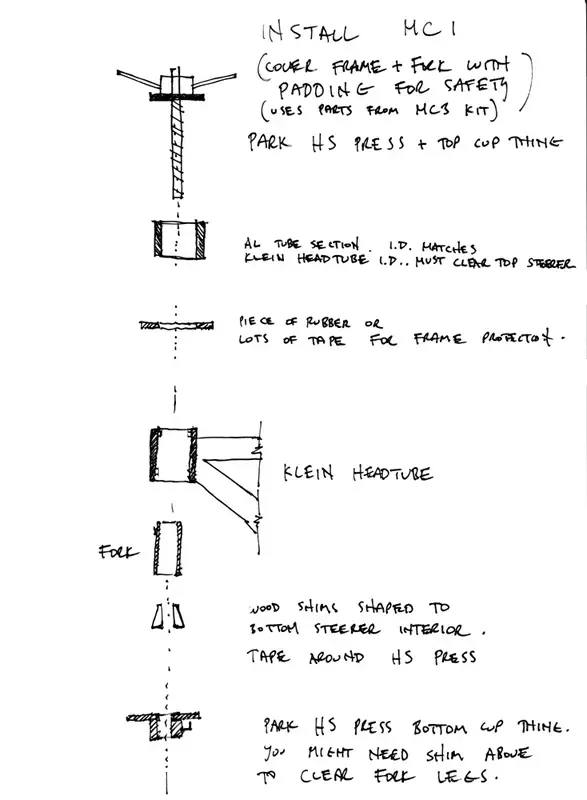 INSTALL MC1
(COVER FRAME + FORK WITH
PADDING FOR SAFETY
(USES PARTS FROM MC3 KIT)
PARK HS PRESS + TOP CUP THING
AL TUBE SECTION. I.D. MATCHES
KLEIN HEADTUBE I.D.. MUST CLEAR TOP STEERER
PIECE OF RUBBER OR
LOTS OF TAPE FOR FRAME PROTECTION.
KLEIN HEADTUBE
FORK
WOOD SHIMS SHAPED TO
BOTTOM STEERER INTERIOR.
TAPE AROUND HS PRESS
PARK HS PRESS BOTTOM CUP THING.
YOU MIGHT NEED SHIM ABOVE
TO CLEAR FORK LEGS.